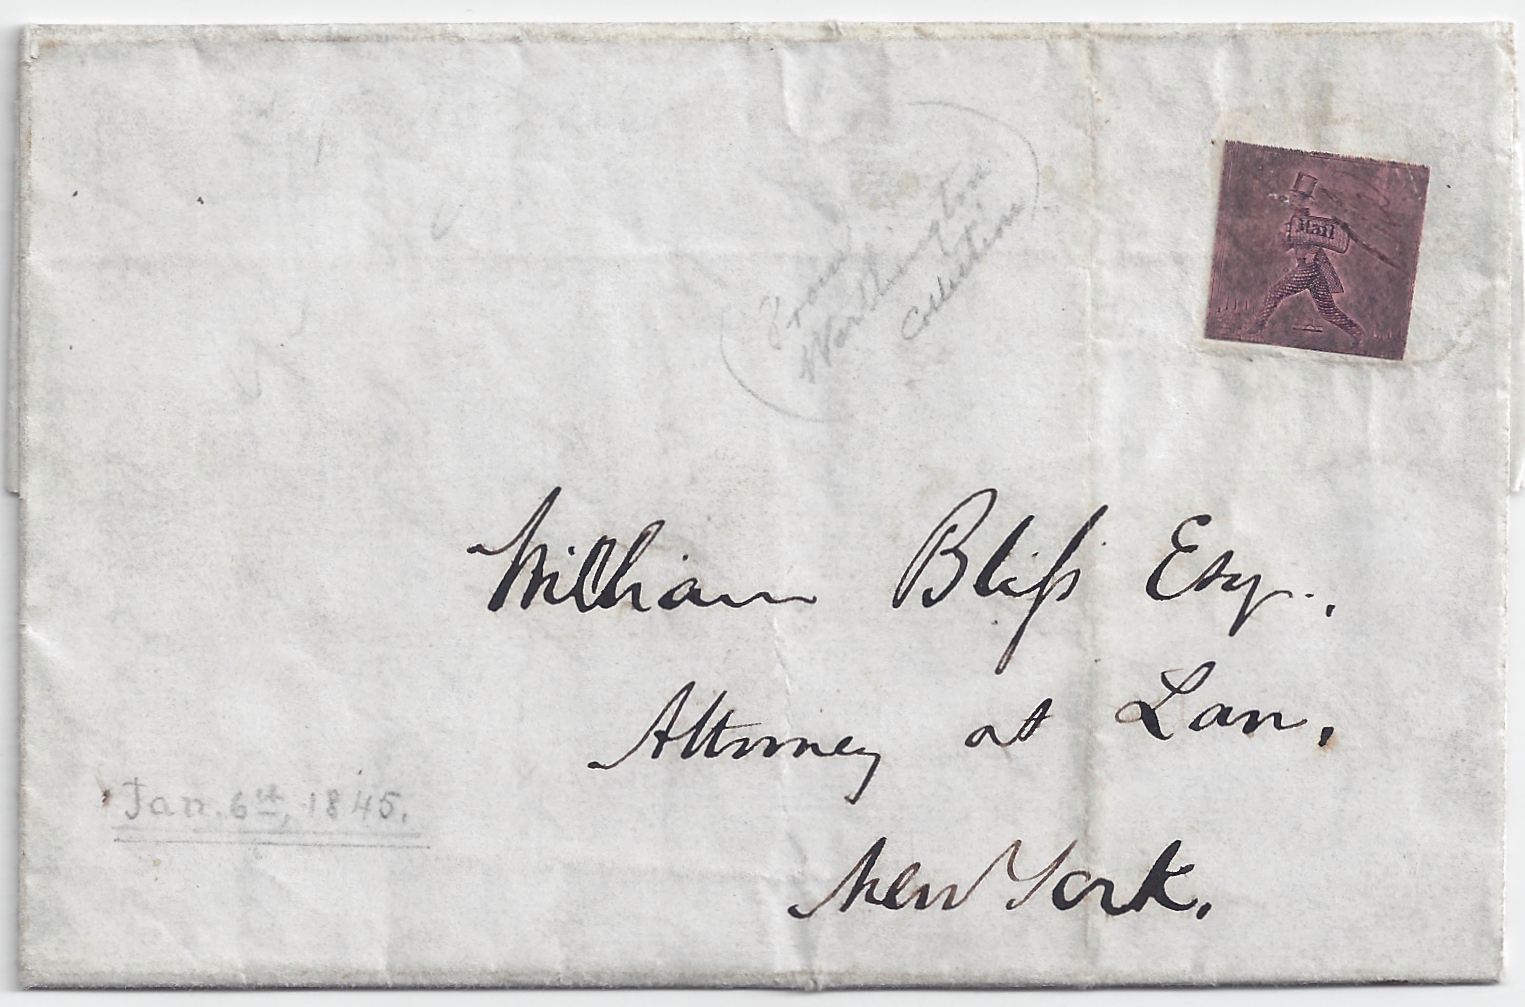 From
Worthington
Collection
Mail
William Bliſs Esq.,
Attorney at Law,
New York.
Jan. 6th, 1845.